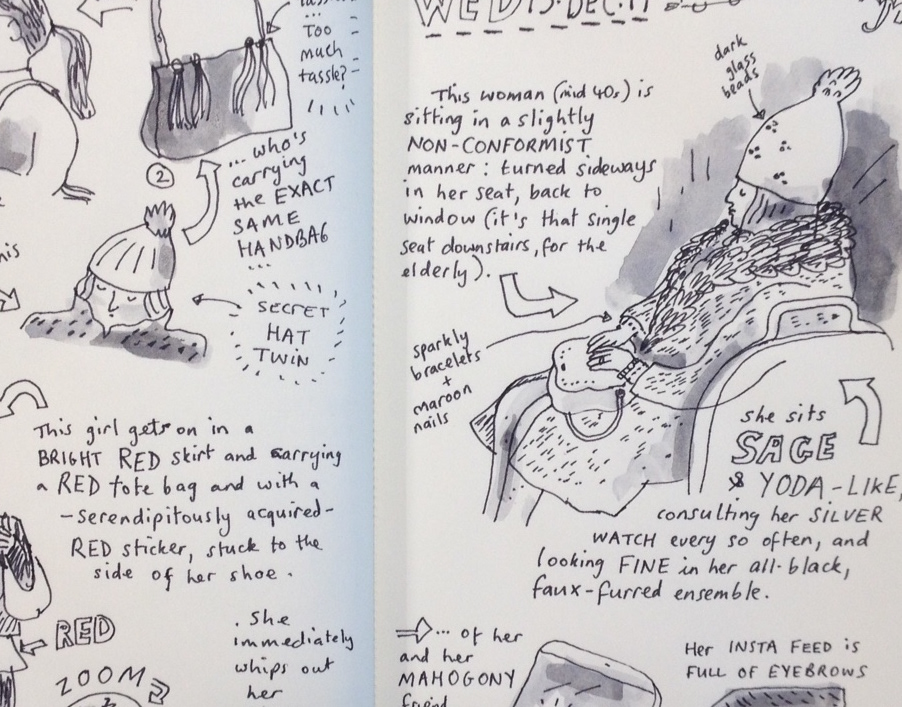 Too
much
tassle?
②
... who's
carrying
the EXACT
SAME
HANDBAG
...
SECRET
HAT
TWIN
This girl gets on in a
BRIGHT RED skirt and carrying
a RED tote bag and with a
-serendipitously acquired-
RED sticker, stuck to the
side of her shoe.
RED
ZOOM
. She
immediately
whips out
her
WED 13. DEC. 17
dark
glass
beads
This woman (mid 40s) is
sitting in a slightly
NON-CONFORMIST
manner: turned sideways
in her seat, back to
window (it's that single
seat downstairs, for the
elderly).
sparkly
bracelets
+
maroon
nails
she sits
SAGE
& YODA-LIKE,
consulting her SILVER
WATCH every so often, and
looking FINE in her all-black,
faux-furred ensemble.
... of her
and her
MAHOGONY
friend
Her INSTA FEED is
FULL OF EYEBROWS